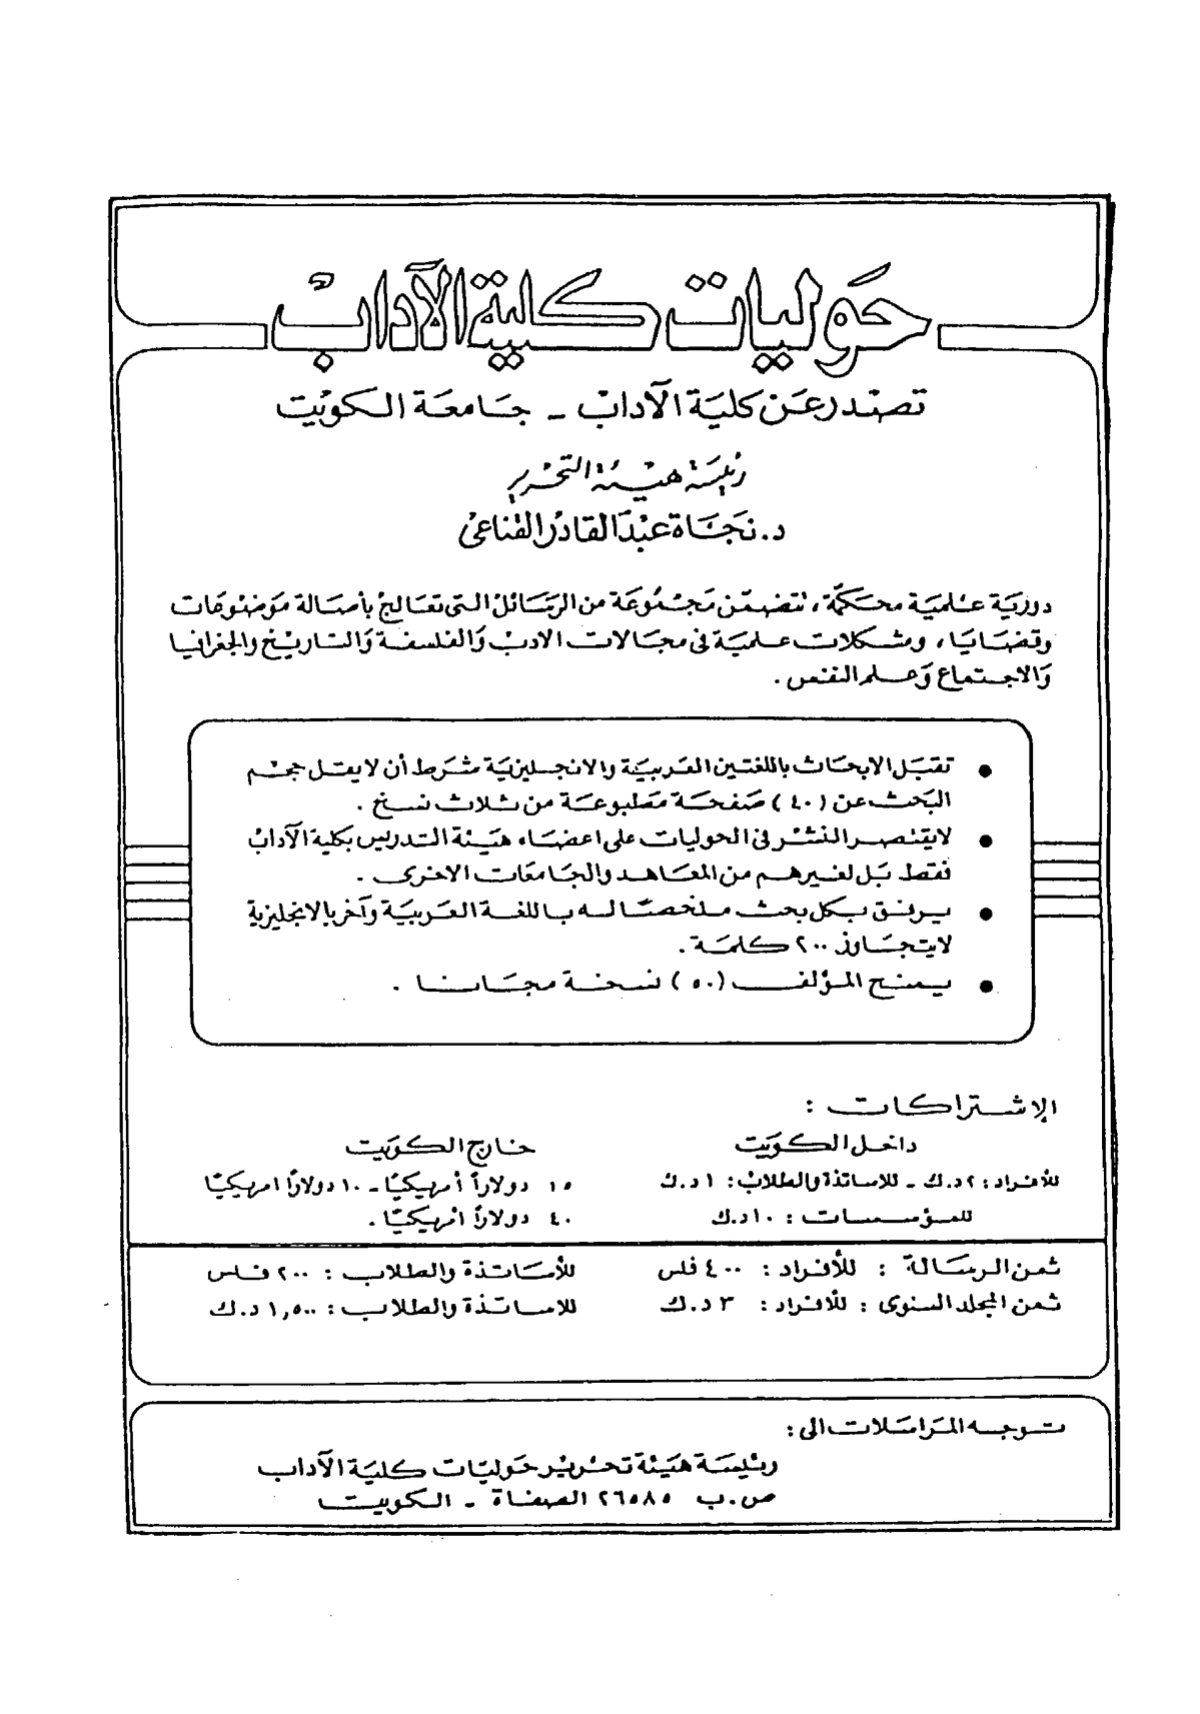 حوليات كلية الآداب
تصدر عن كلية الآداب - جامعة الكويت
رئيسة هيئة التحرير
د. نجاة عبدالقادر القناعي
دورية علمية محكمة، تتضمن مجموعة من الرسائل التى تعالج بأصالة موضوعات
وقضايا، ومشكلات علمية فى مجالات الادب والفلسفة والتاريخ والجغرافيا
والاجتماع وعلم النفس .
● تقبل الابحاث باللغتين العربية والانجليزية شرط أن لا يقل حجم
البحث عن (٤٠) صفحة مطبوعة من ثلاث نسخ .
● لا يقتصر النشر فى الحوليات على اعضاء هيئة التدريس بكلية الآداب
فقط بل لغيرهم من المعاهد والجامعات الاخرى .
● يرفق بكل بحث ملخصا له باللغة العربية وآخر بالانجليزية
لا يتجاوز ٢٠٠ كلمة .
● يمنح المؤلف (٥٠) نسخة مجانا .
الإشتراكات :
داخل الكويت خارج الكويت
للأفراد : ٢ د.ك - للاساتذة والطلاب : ١ د.ك ١٥ دولاراً أمريكيًا - ١٠ دولاراً امريكيًا
للمؤسسات : ١٠ د.ك ٤٠ دولاراً امريكيًا .
ثمن الرسالة : للأفراد : ٤٠٠ فلس للأساتذة والطلاب : ٢٠٠ فلس
ثمن المجلد السنوى : للأفراد : ٣ د.ك للاساتذة والطلاب : ١,٥٠٠ د.ك
توجه المراسلات الى :
رئيسة هيئة تحرير حوليات كلية الآداب
ص.ب ٢٦٥٨٥ الصفاة - الكويت